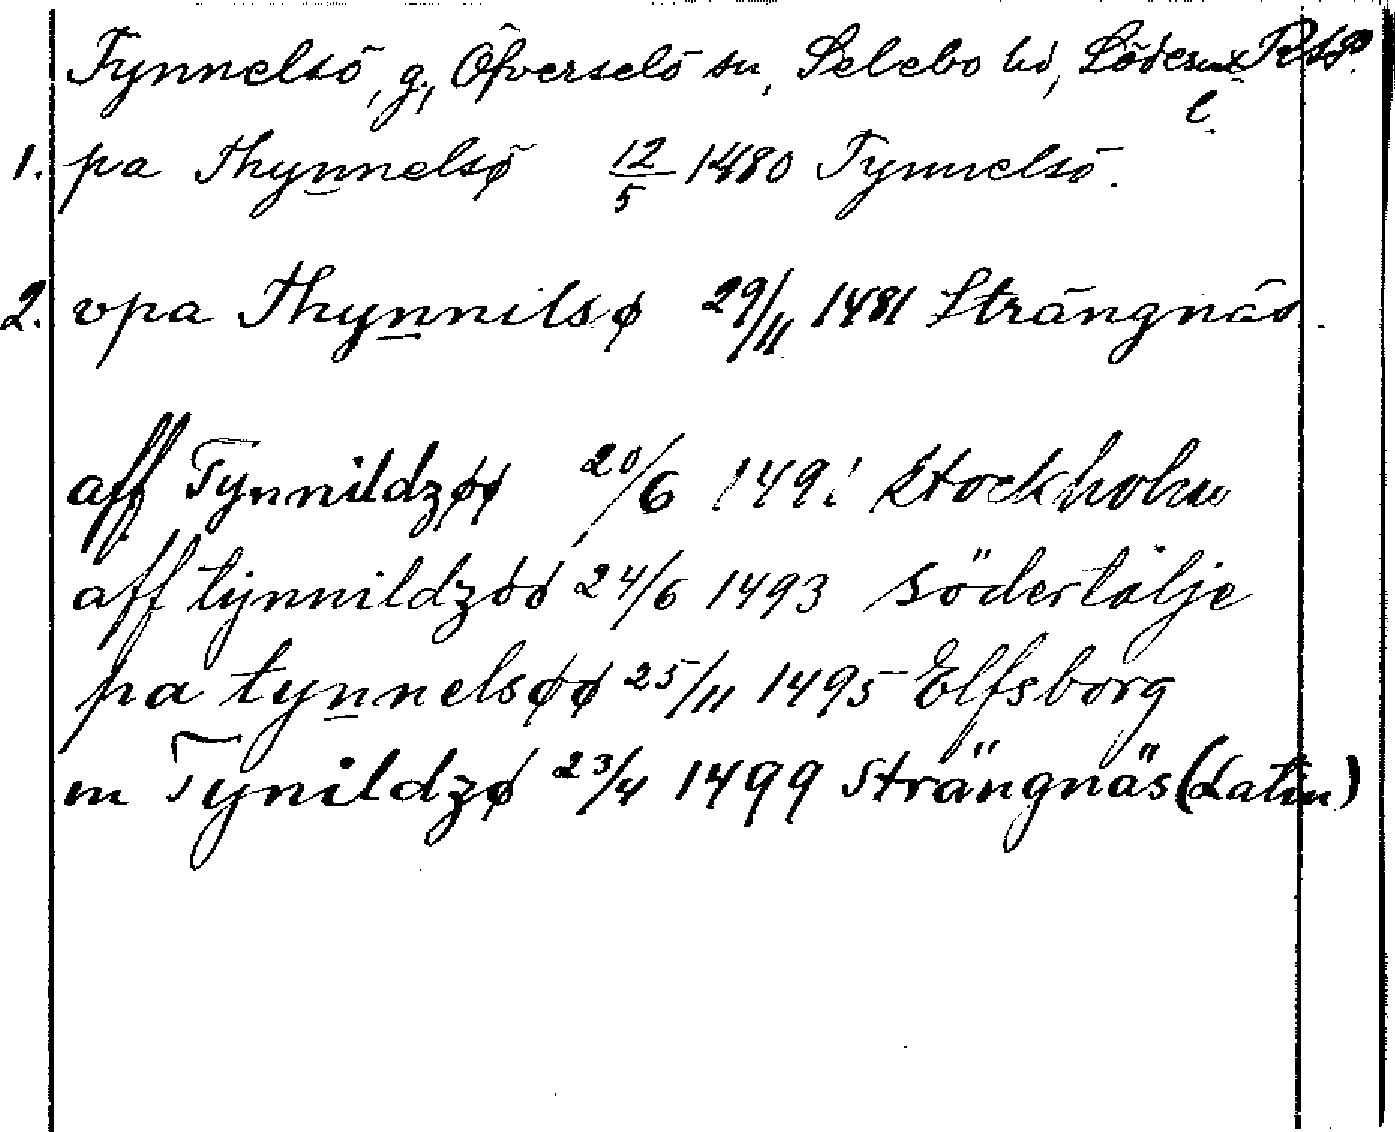 Tynnelsö, g, Öfverselö sn, Selebo hd, Söderml. RAP.
1. pa Thynnelsø 12/5 1480 Tynnelsö.
2. vpa Thynnilsø 29/11 1481 Strängnäs.
aff Tynnildzøø 20/6 1491 Stockholm
aff tynnildzøø 24/6 1493 Södertälje
pa tynnelsøø 25/11 1495 Elfsborg
in Tynildzø 23/4 1499 Strängnäs (Latin)